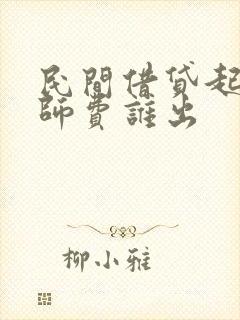 民間借貸起
師費誰出
柳小雅